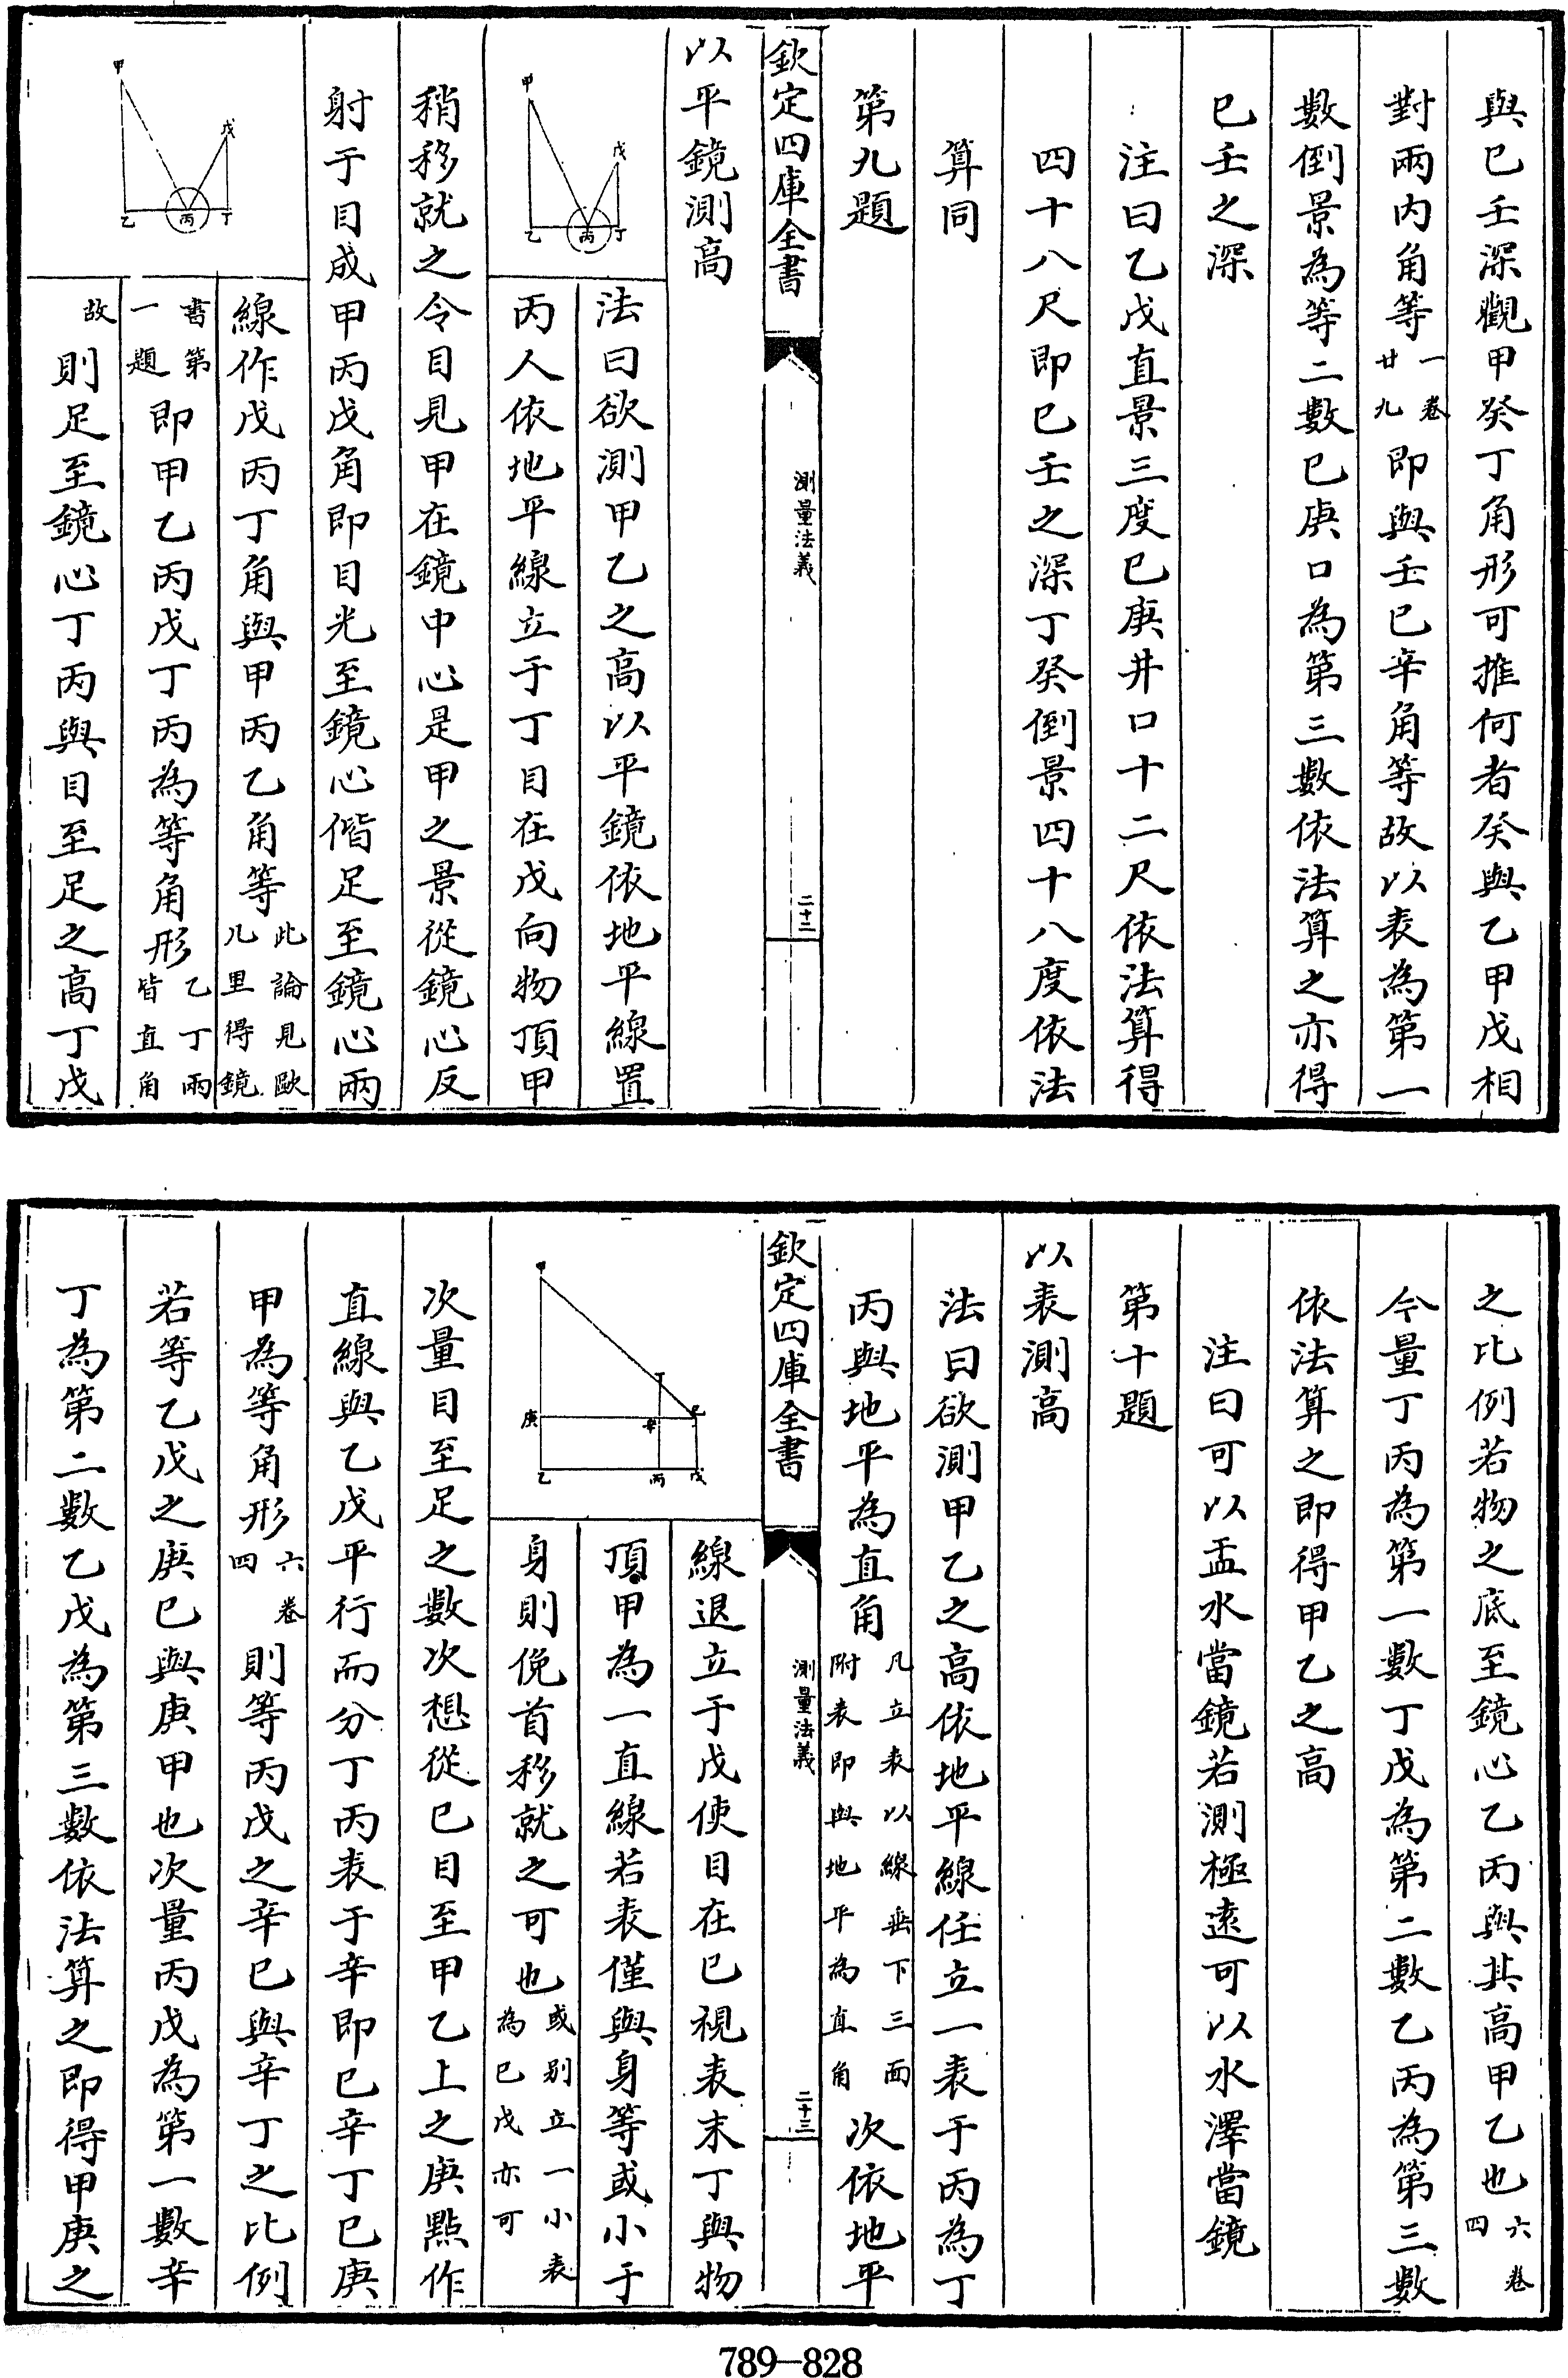 與巳壬深觀甲癸丁角形可推何者癸與乙甲戊相
對兩内角等一卷廿九即與壬巳辛角等故以表為第一
數倒景為等二數巳庚口為第三數依法算之亦得
巳壬之深
注曰乙戊直景三度巳庚井口十二尺依法算得
四十八尺即巳壬之深丁癸倒景四十八度依法
算同
第九題
欽定四庫全書
測量法義
二十二
以平鏡測高
甲
戊
乙
丙
丁
法曰欲測甲乙之高以平鏡依地平線置
丙人依地平線立于丁目在戊向物頂甲
稍移就之令目見甲在鏡中心是甲之景從鏡心反
射于目成甲丙戊角即目光至鏡心偕足至鏡心兩
甲
戊
乙
丙
丁
線作戊丙丁角與甲丙乙角等此論見歐几里得鏡
書第一題即甲乙丙戊丁丙為等角形乙丁兩皆直角
故則足至鏡心丁丙與目至足之高丁戊
之比例若物之底至鏡心乙丙與其高甲乙也六卷四
今量丁丙為第一數丁戊為第二數乙丙為第三數
依法算之即得甲乙之高
注曰可以盂水當鏡若測極遠可以水澤當鏡
第十題
以表測高
法曰欲測甲乙之高依地平線任立一表于丙為丁
丙與地平為直角凡立表以線垂下三面附表即與地平為直角次依地平
欽定四庫全書
測量法義
二十三
甲
丁
巳
庚
辛
乙
丙
戊
線退立于戊使目在巳視表末丁與物
頂甲為一直線若表僅與身等或小于
身則俛首移就之可也或别立一小表為巳戊亦可
次量目至足之數次想從巳目至甲乙上之庚點作
直線與乙戊平行而分丁丙表于辛即巳辛丁巳庚
甲為等角形六卷四則等丙戊之辛巳與辛丁之比例
若等乙戊之庚巳與庚甲也次量丙戊為第一數辛
丁為第二數乙戊為第三數依法算之即得甲庚之
789-828